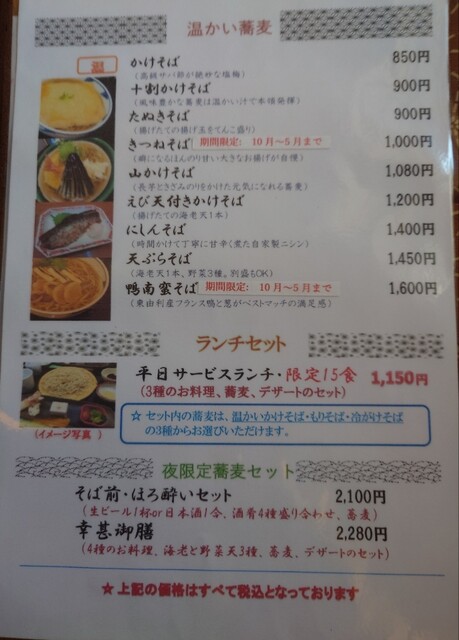 温かい蕎麦
温 かけそば 850円
十割かけそば 900円
(風味豊かな蕎麦は温かい汁で本領発揮)
たぬきそば 900円
(揚げたての揚げ玉をてんこ盛り)
きつねそば 期間限定: 10月~5月まで 1,000円
(癖になるほんのり甘い大きなお揚げが自慢)
山かけそば 1,080円
(長芋ときざみのりをかけた元気になれる蕎麦)
えび天付きかけそば 1,200円
(揚げたての海老天1本)
にしんそば 1,400円
(時間かけて丁寧に甘辛く煮た自家製ニシン)
天ぷらそば 1,450円
(海老天1本、野菜3種。別盛もOK)
鴨南蛮そば 期間限定: 10月~5月まで 1,600円
(東由利産フランス鴨と葱がベストマッチの満足感)
ランチセット
平日サービスランチ・限定15食 1,150円
(3種のお料理、蕎麦、デザートのセット)
(イメージ写真 )
☆ セット内の蕎麦は、温かいかけそば・もりそば・冷がけそば
の3種からお選びいただけます。
夜限定蕎麦セット
そば前・ほろ酔いセット 2,100円
(生ビール1杯or日本酒1合、酒肴4種盛り合わせ、蕎麦)
幸甚御膳 2,280円
(4種のお料理、海老と野菜天3種、蕎麦、デザートのセット)
★上記の価格はすべて税込となっております